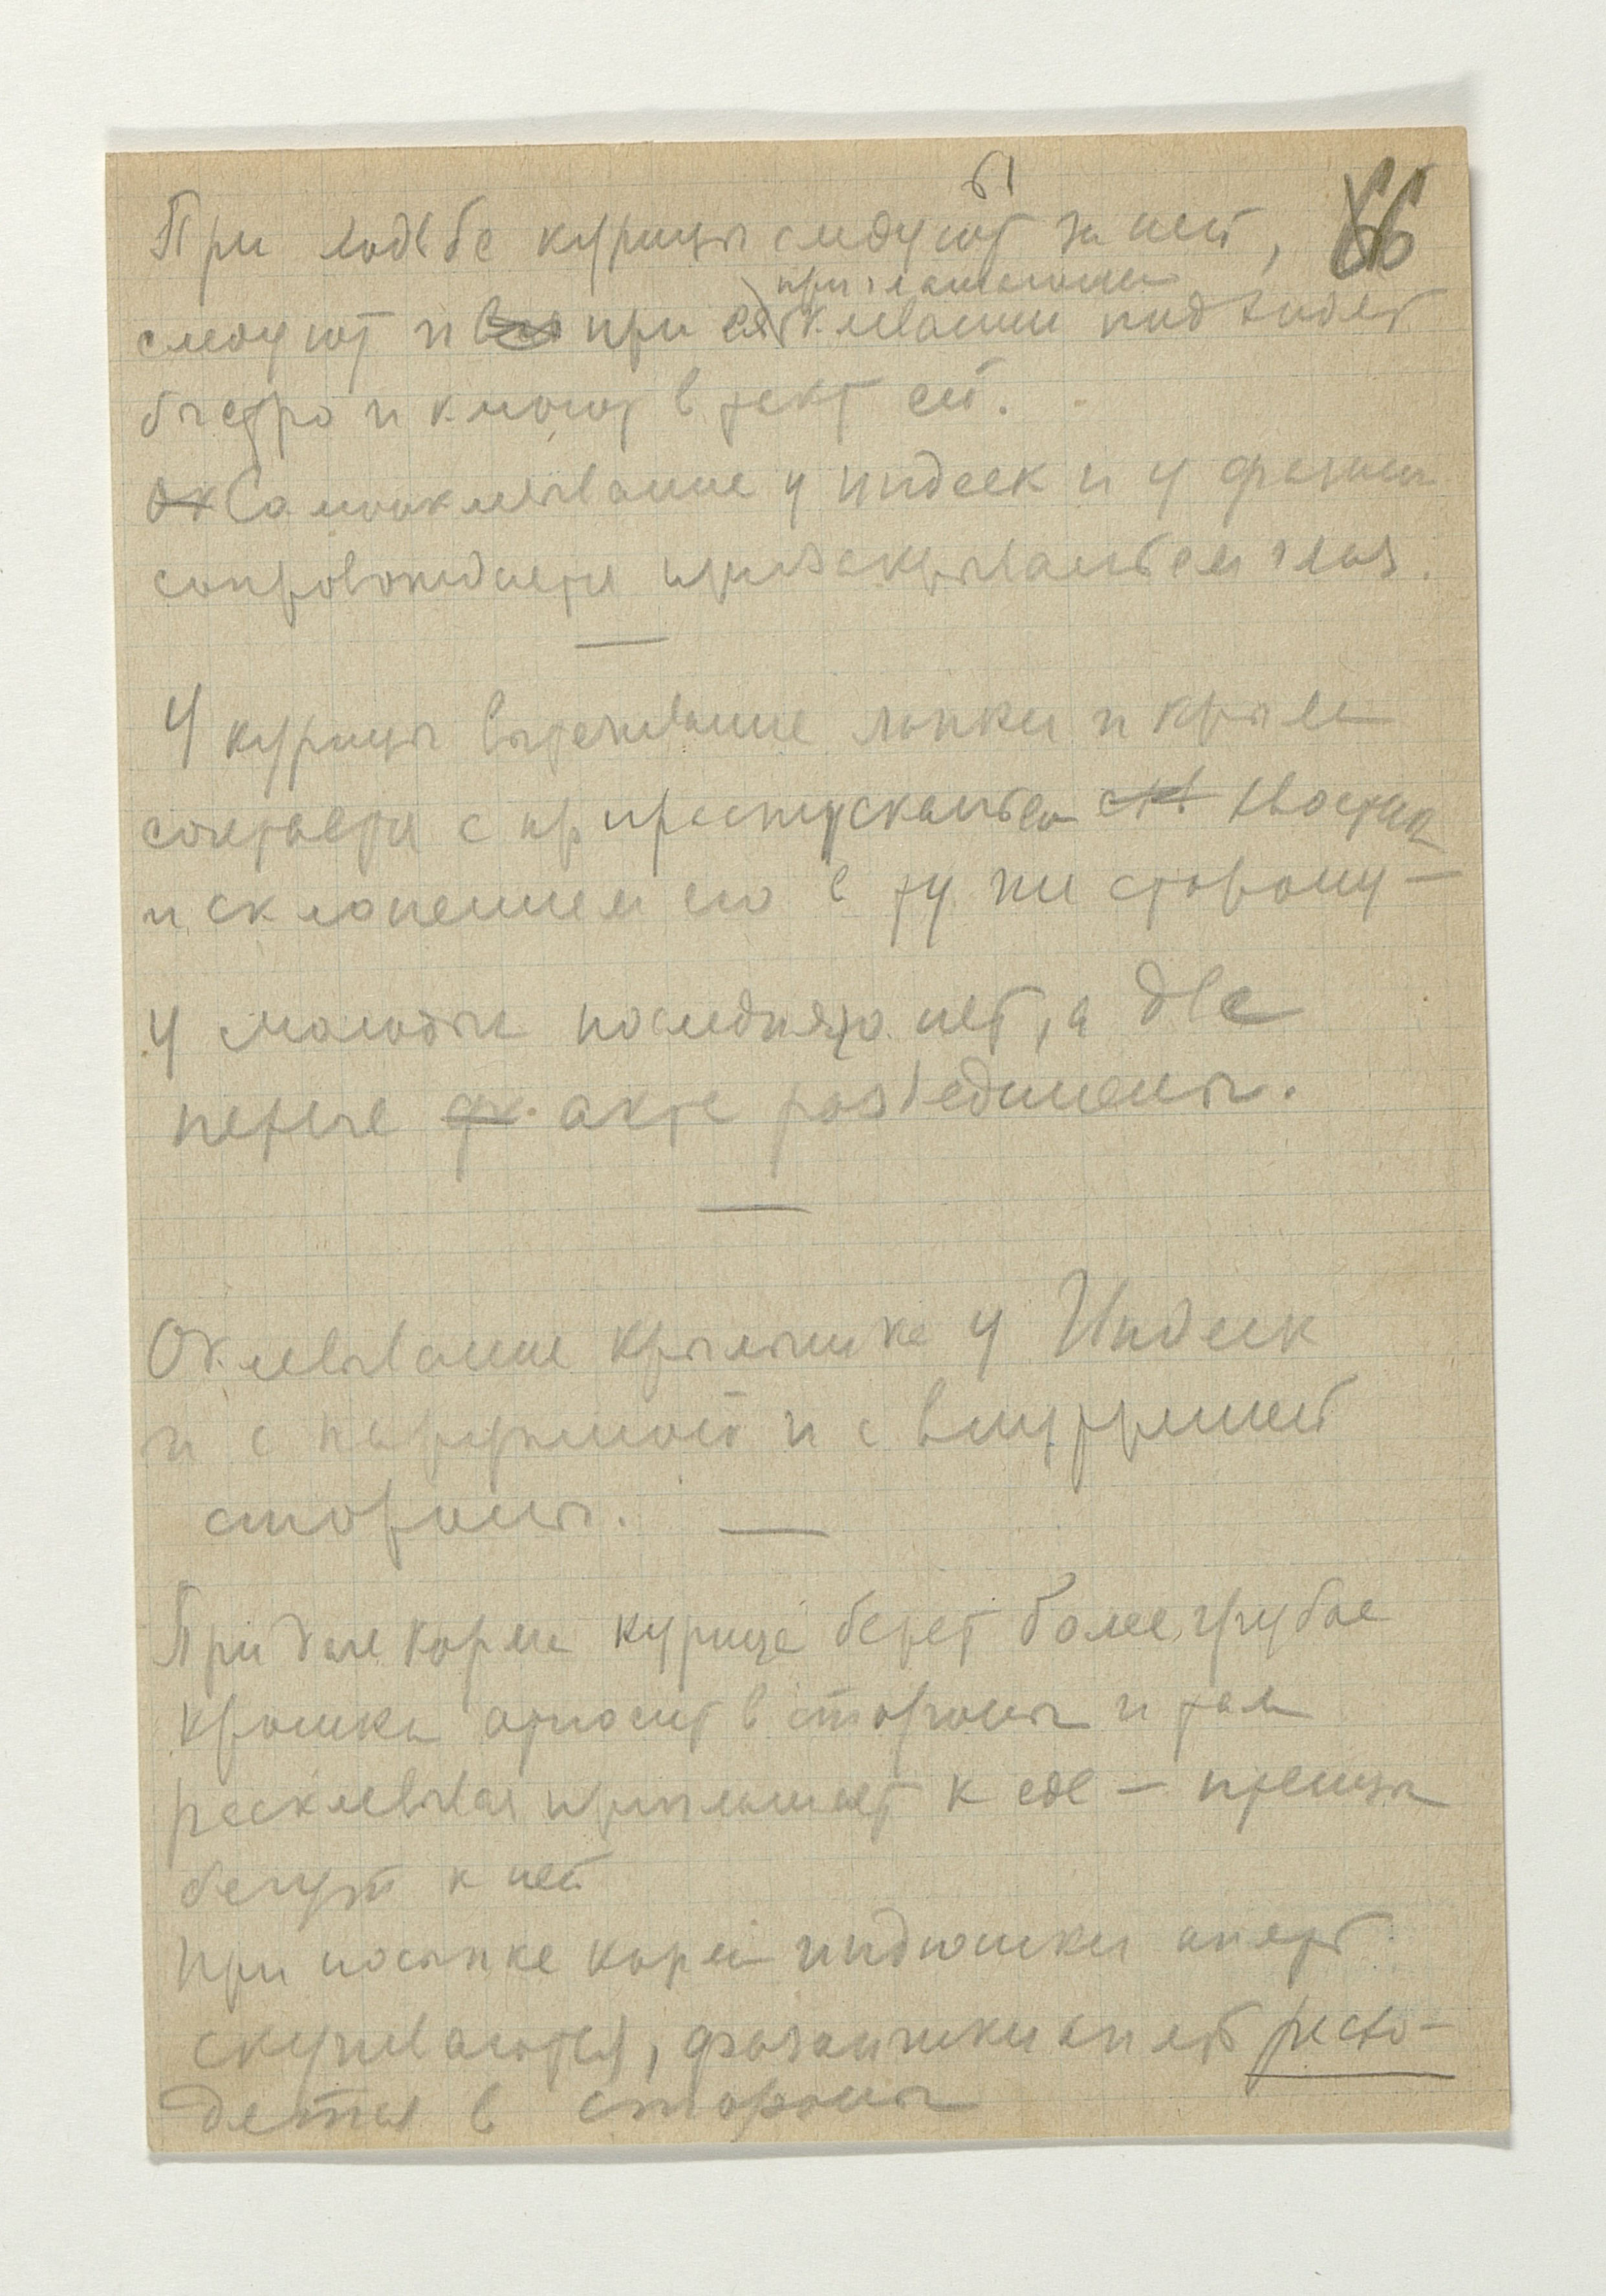 66
При ходьбе курицы следуют за ней,
приглашении
следуют и при клевании подходят
быстро и клюют в такт ей.
Самоокл­евывание у индеек и у фазан
сопровождается призакрываньем глаз.
—
У курицы вытягивание лапки и крыла
сочетается с приспусканьем хвостика
и склонением его в ту же сторону —
У молоди последнего нет, а две
первые акта разъединены.
—
Оклевывание крылышка у Индеек
и с наружной и с внутренней
стороны. —
При даче корма курица берет более грубые
крошки относит в стороны и там
расклевывая приглашает к еде — птенцы
бегут к ней
При посыпке корма индюшки
скучиваются, фазанчики расхо-
дятся в стороны